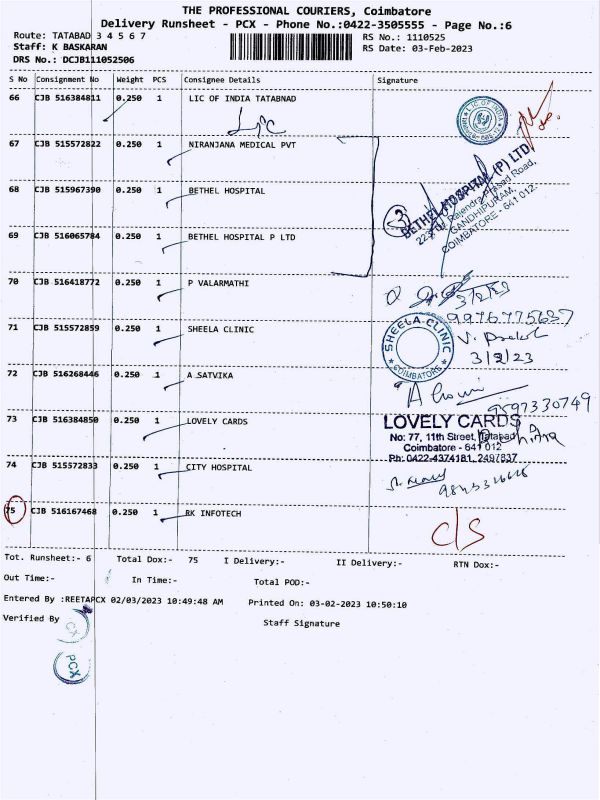 THE PROFESSIONAL COURIERS, Coimbatore
Delivery Runsheet - PCX - Phone No.:0422-3505555 - Page No.:6
Route: TATABAD 3 4 5 6 7 RS No.: 1110525
Staff: K BASKARAN RS Date: 03-Feb-2023
DRS No.: DCJB111052506
S No Consignment No Weight PCS Consignee Details Signature
66 CJB 516384811 0.250 1 LIC OF INDIA TATABNAD
LIC
LIC OF INDIA
67 CJB 515572822 0.250 1 NIRANJANA MEDICAL PVT
68 CJB 515967390 0.250 1 BETHEL HOSPITAL
3
BETHEL HOSPITAL (P) LTD
Rajendra Prasad Road,
GANDHIPURAM,
COIMBATORE - 641 012.
69 CJB 516065784 0.250 1 BETHEL HOSPITAL P LTD
70 CJB 516418772 0.250 1 P VALARMATHI
3/2/23
9976775637
71 CJB 515572859 0.250 1 SHEELA CLINIC
SHEELA CLINIC
COIMBATORE
3/2/23
72 CJB 516268446 0.250 1 A SATVIKA
9597330749
73 CJB 516384850 0.250 1 LOVELY CARDS
LOVELY CARDS
No: 77, 11th Street, Tatabad
Coimbatore - 641 012
Ph: 0422-4374181, 2497837
74 CJB 515572833 0.250 1 CITY HOSPITAL
75 CJB 516167468 0.250 1 RK INFOTECH
C/S
Tot. Runsheet:- 6 Total Dox:- 75 I Delivery:- II Delivery:- RTN Dox:-
Out Time:- In Time:- Total POD:-
Entered By :REETAPCX 02/03/2023 10:49:48 AM Printed On: 03-02-2023 10:50:10
Verified By Staff Signature
PCX